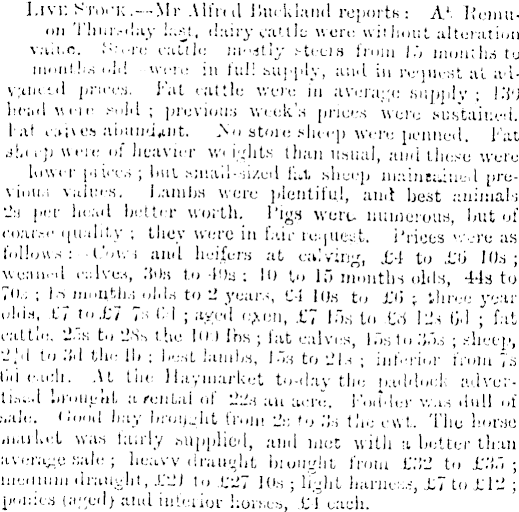 LIVE STOCK.—Mr Alfred Buckland reports: At Remu-
on Thursday last, dairy cattle were without alteration
value. Store cattle mostly steers from 15 months to
months old were in full supply, and in request at ad-
vanced prices. Fat cattle were in average supply; 139
head were sold; previous week's prices were sustained.
Fat calves abundant. No store sheep were penned. Fat
sheep were of heavier weights than usual, and these were
lower prices; but small-sized fat sheep maintained pre-
vious values. Lambs were plentiful, and best animals
2s per head better worth. Pigs were numerous, but of
coarse quality; they were in fair request. Prices were as
follows:—Cows and heifers at calving, £4 to £6 10s;
weaned calves, 30s to 40s; 10 to 15 months olds, 44s to
70s; 18 months olds to 2 years, £4 10s to £6; three year
olds, £7 to £7 7s 6d; aged oxen, £7 15s to £8 12s 6d; fat
cattle, 25s to 28s the 100 lbs; fat calves, 15s to 35s; sheep,
2½d to 3d the lb; best lambs, 15s to 21s; inferior from 7s
6d each. At the Haymarket to-day the paddock adver-
tised brought a rental of 22s an acre. Fodder was dull of
sale. Good hay brought from 2s to 3s the cwt. The horse
market was fairly supplied, and met with a better than
average sale; heavy draught brought from £32 to £35;
medium draught, £21 to £27 10s; light harness, £7 to £12;
ponies (aged) and inferior horses, £4 each.